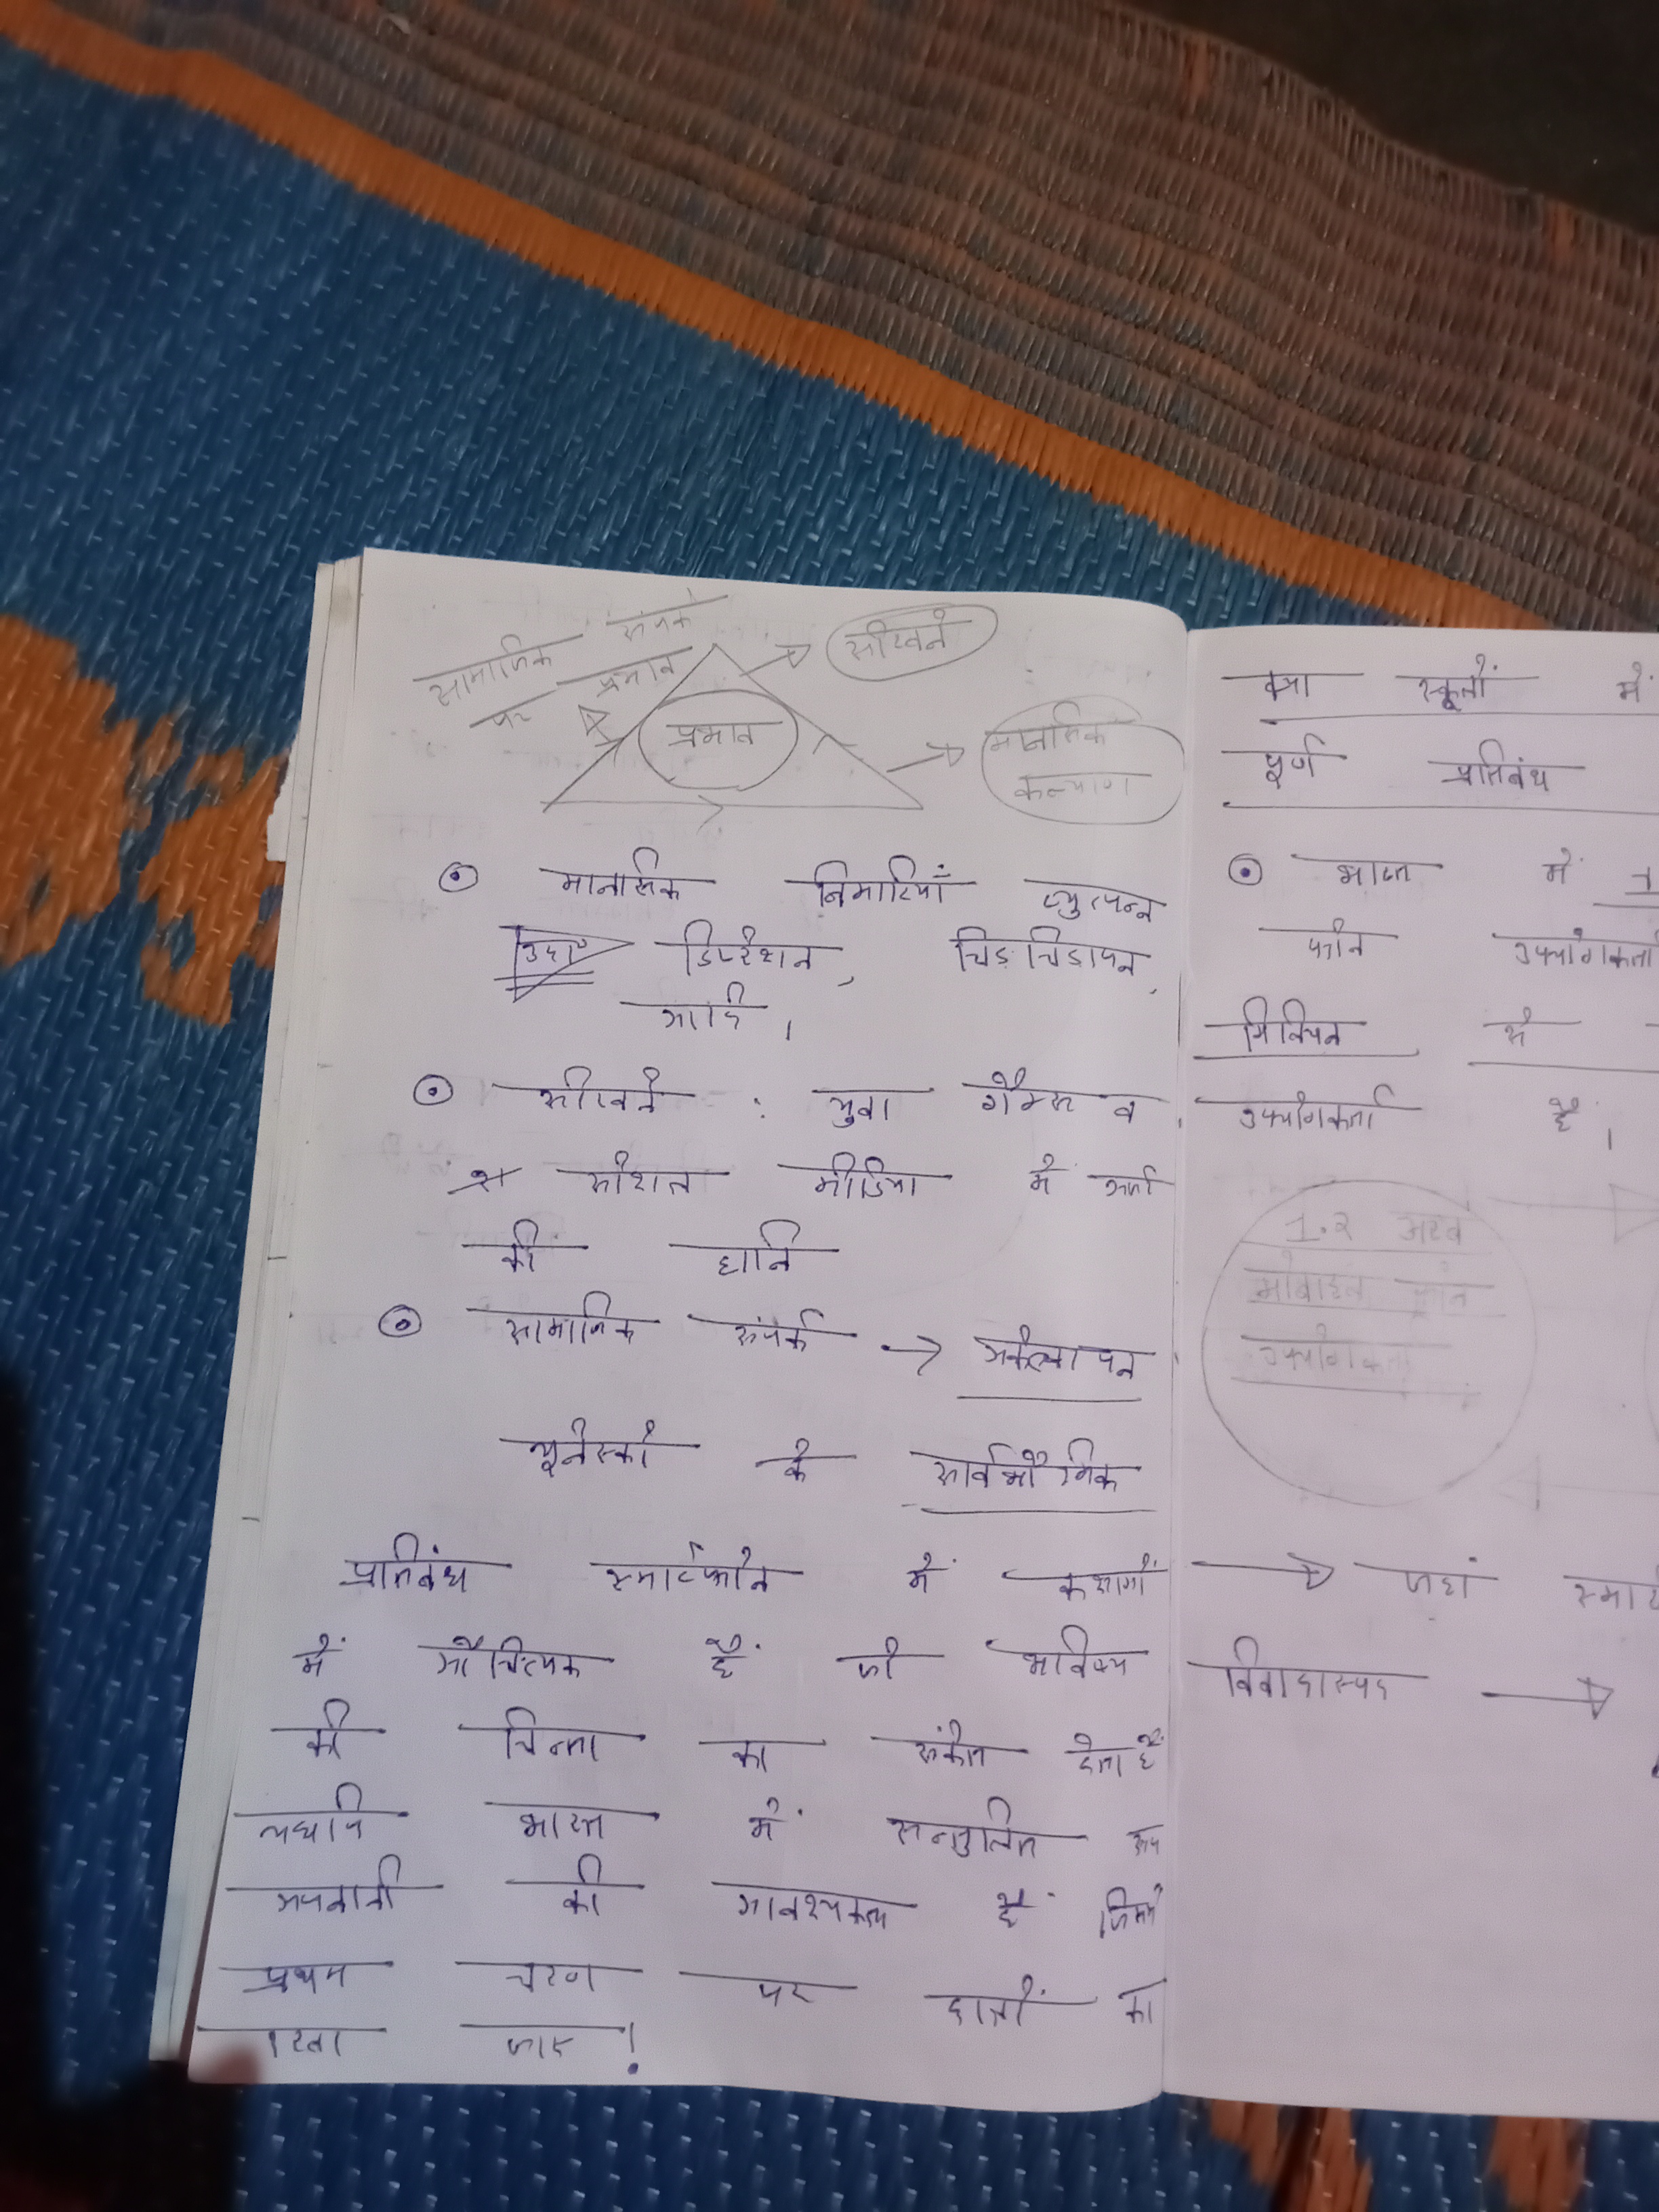 सामाजिक संपर्क
पर प्रभाव
सीखने
प्रभाव
मानसिक
कल्याण
मानसिक बिमारियाँ व्युत्पन्न
उदा० डिप्रेशन, चिडचिडापन,
आदि।
सीखने : युवा गेम्स व
सोशल मीडिया में
की हानि
सामाजिक संपर्क → अकेलापन
यूनेस्को के सार्वभौमिक
प्रतिबंध स्मार्टफोन में कक्षाओं
में औचित्यक हैं जो भविष्य
की चिन्ता का संकेत देता हैं
तथापि भारत में सन्तुलित रूप
अपनाने की आवश्यकता हैं जिसमें
प्रथम चरण पर छात्रों का
रखा जाए!
क्या स्कूलों में
पूर्ण प्रतिबंध
भारत में 1
फोन उपयोगकर्ता
मिलियन से
उपयोगकर्ता है।
1.2 अरब
मोबाइल फोन
उपयोगकर्ता
→ जहां
विवादास्पद →